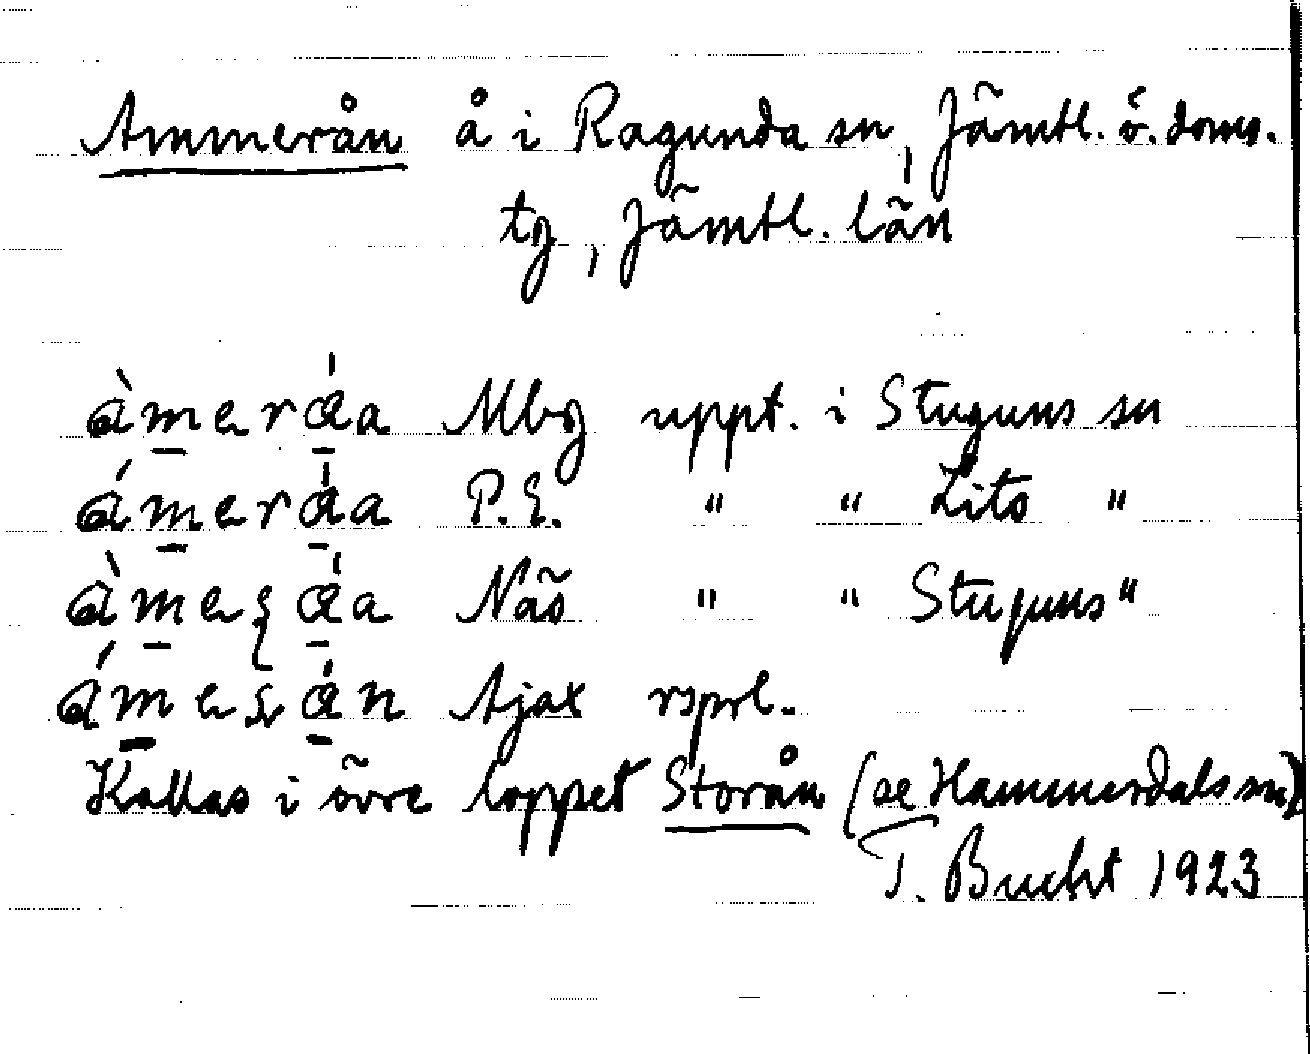 Ammerån å i Ragunda sn, Jämtl. ö. doms.
tg, Jämtl. län
àmerá̱a Mbg uppt. i Stuguns sn
ámerá̱a P.E. " " Lits "
Näs " " Stuguns "
Ajax rspr.
Kallas i övre loppet Storån (se Hammerdals sn)
T. Bucht 1923